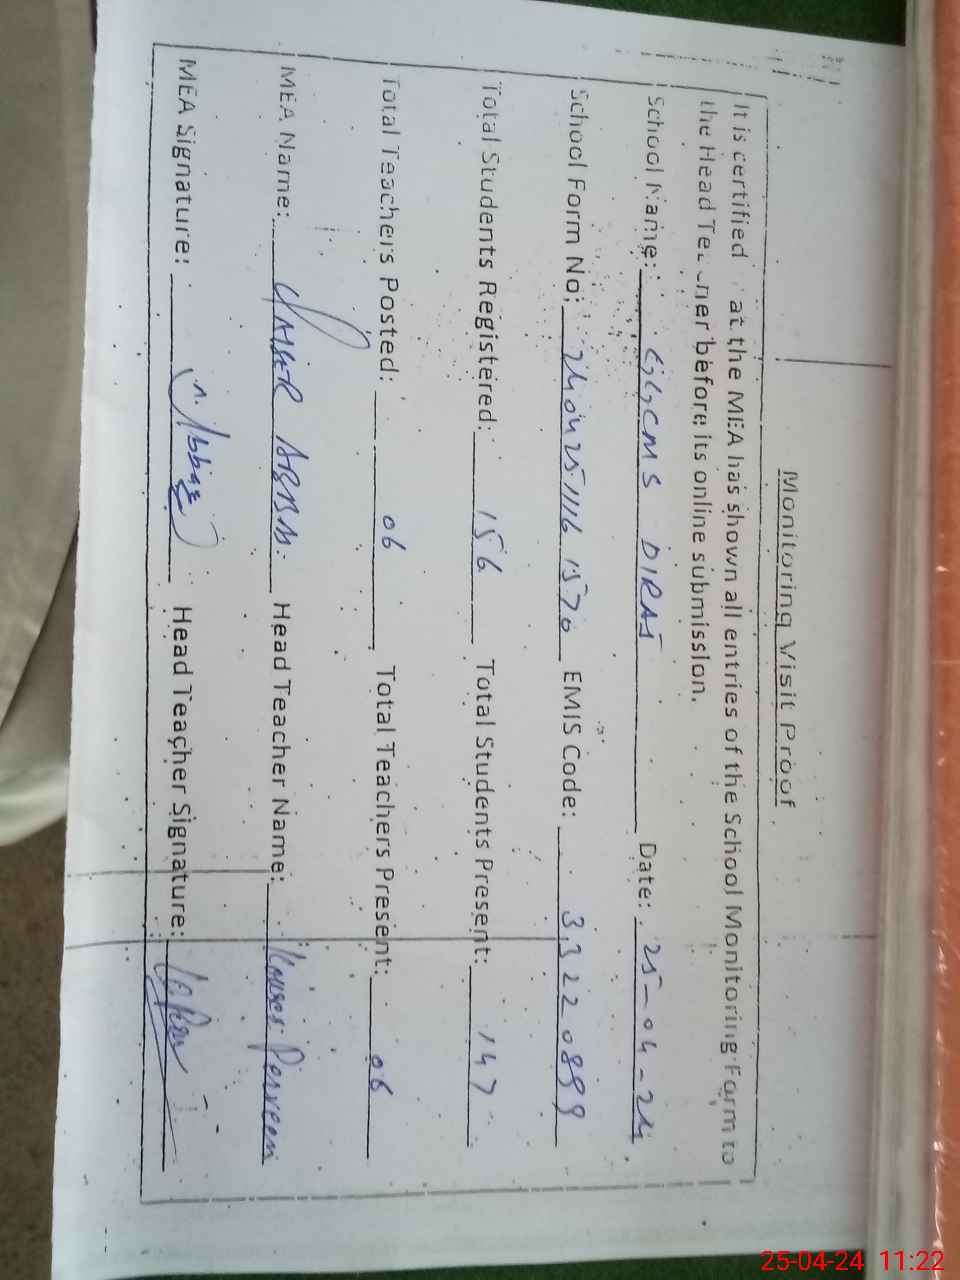 Monitoring Visit Proof
It is certified at the MEA has shown all entries of the School Monitoring Form to
the Head Teacher before its online submission.
School Name: GGCMS DIRAJ Date: 25-04-24
School Form No: 24042511161570 EMIS Code: 33220899
Total Students Registered: 156 Total Students Present: 147
Total Teachers Posted: 06 Total Teachers Present: 06
MEA Name: Head Teacher Name: Perveen
MEA Signature: Head Teacher Signature:
25-04-24 11:22